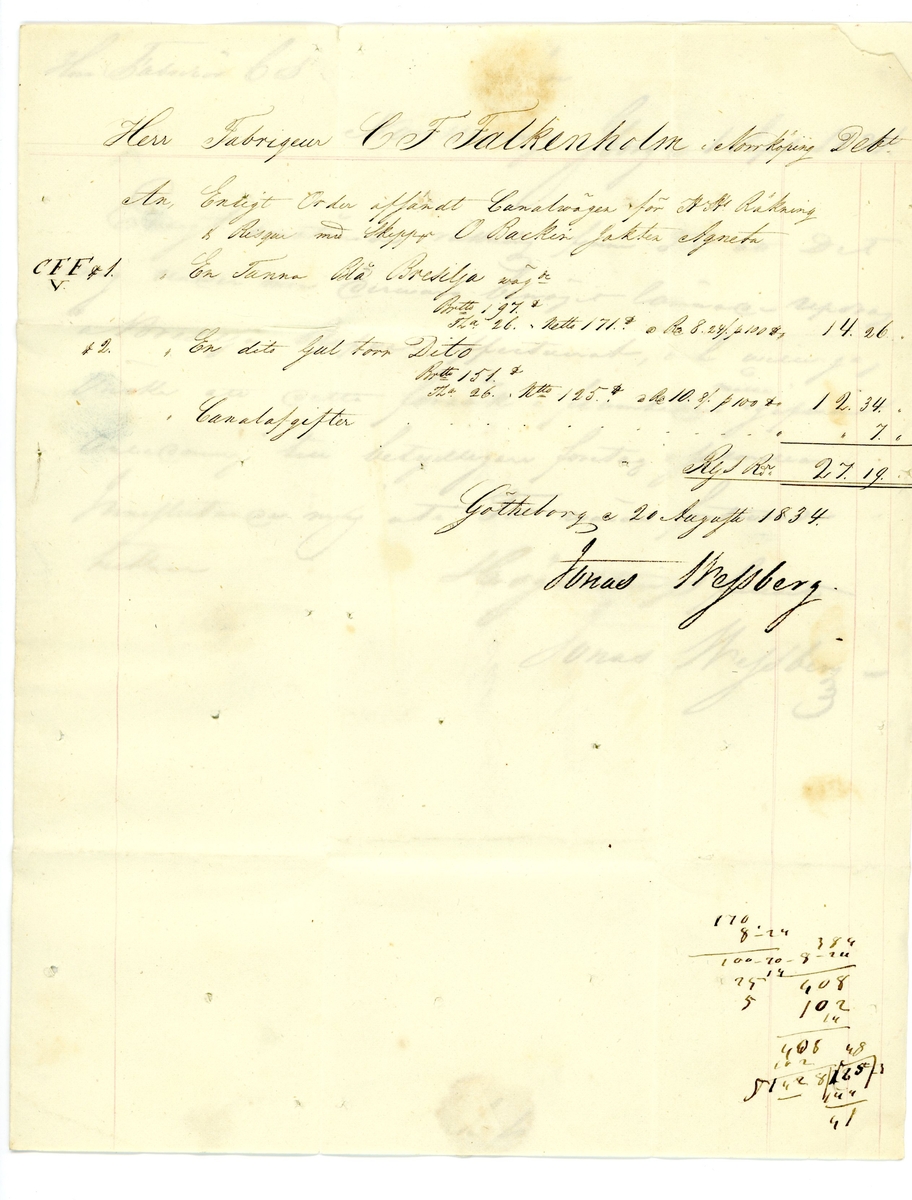 Herr Fabriqeur C F Falkenholm i Norrköping Debt
An, Enligt Order affändt Canalvägen för H Hs Räkning
& Risque med Skepp O Backer Jakten Agneta
CFF # 1. " En Tunna Blå Bresilja wägde
V.
Brtto 197. #
Tha 26. " Netto 171. # a Rd 8. 24/ p 100 # " 14. 26. "
# 2. " En dito Gul korn Dito
Brtto 151. #
Tha 26. " Ntto 125. # a Rd 10. "/ p 100 # " 12. 34. "
" Canalafgifter . . . . . . . . " " 7. "
Rgs Rdr 27. 19.
Götheborg d 20 Augusti 1834.
Jonas Wessberg.
170
8-24 384
100-70-8-24
14
25 408
5 102
14
408 48
102
5 1428 128
144
41